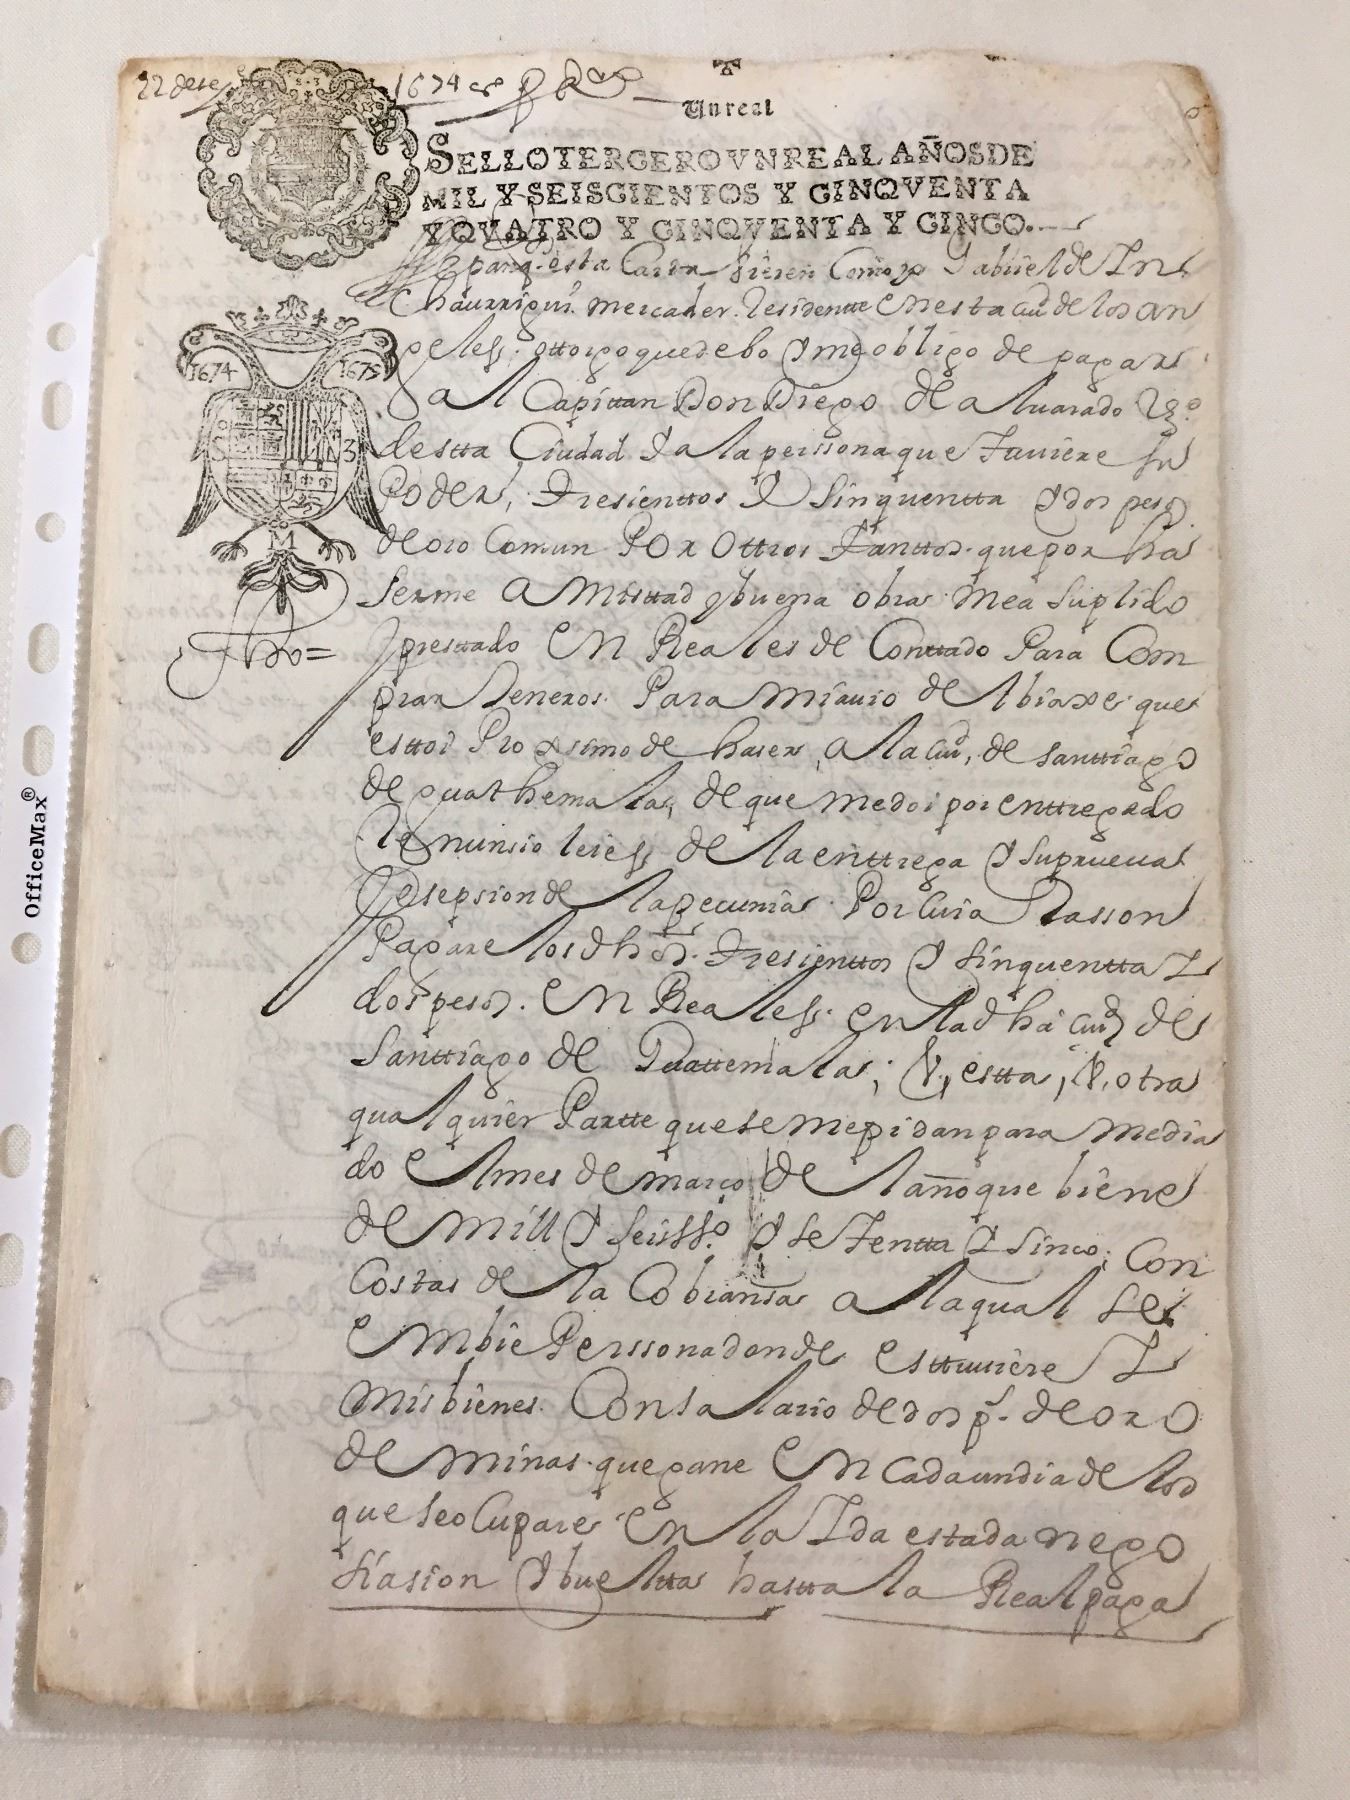 22 de se 1674 as
Un real
SELLO TERCERO VN REAL AÑOS DE
MIL Y SEISCIENTOS Y CINQVENTA
Y QVATRO Y CINQVENTA Y CINCO.
Sepanq. esta Carta bieren Como yo Gabriel de In
chaurrigui mercader Residente en esta ciud de los an
1674 1675
geles. ottorgo que debo y me obligo de pagar
al Capittan Don Diego de aluarado Vzº
destta Ciudad y a la perssona que Tuuiere su
3
Poder, Tresienttos y sinquentta y dos pesos
de oro Comun Por Ottros Tanttos que por ha
M
serme amisttad y buena obra mea suplido
y presttado en Reales de Conttado Para Com
prar Generos Para mi auio del biaxe que
esttoi Proximo de haser, a la ciud, de santtiago
de guathemala, de que me doi por enttregado
Renunsio leies de la enttrega y su prueua
esepsion de la pecunia Por Cuia Rasson
Pagare los dhos Tresienttos y sinquentta I
dos pesos. en Reales. en la dha ciud de
Santtiago de Guattemala; V, estta, V, otra
qualquier Partte que se me pidan para media
do el mes de março de el año que biene
de mill y seissos y seTentta y sinco; Con
Costas de la Cobransa a la qual se
embie Perssona donde esttuuiere I
mis bienes Con salario de dos ps. de oro
de minas que gane en cada un dia de los
que se oCupare en la Ida estada nego
siasion y bueltta hastta la Real paga
OfficeMax®